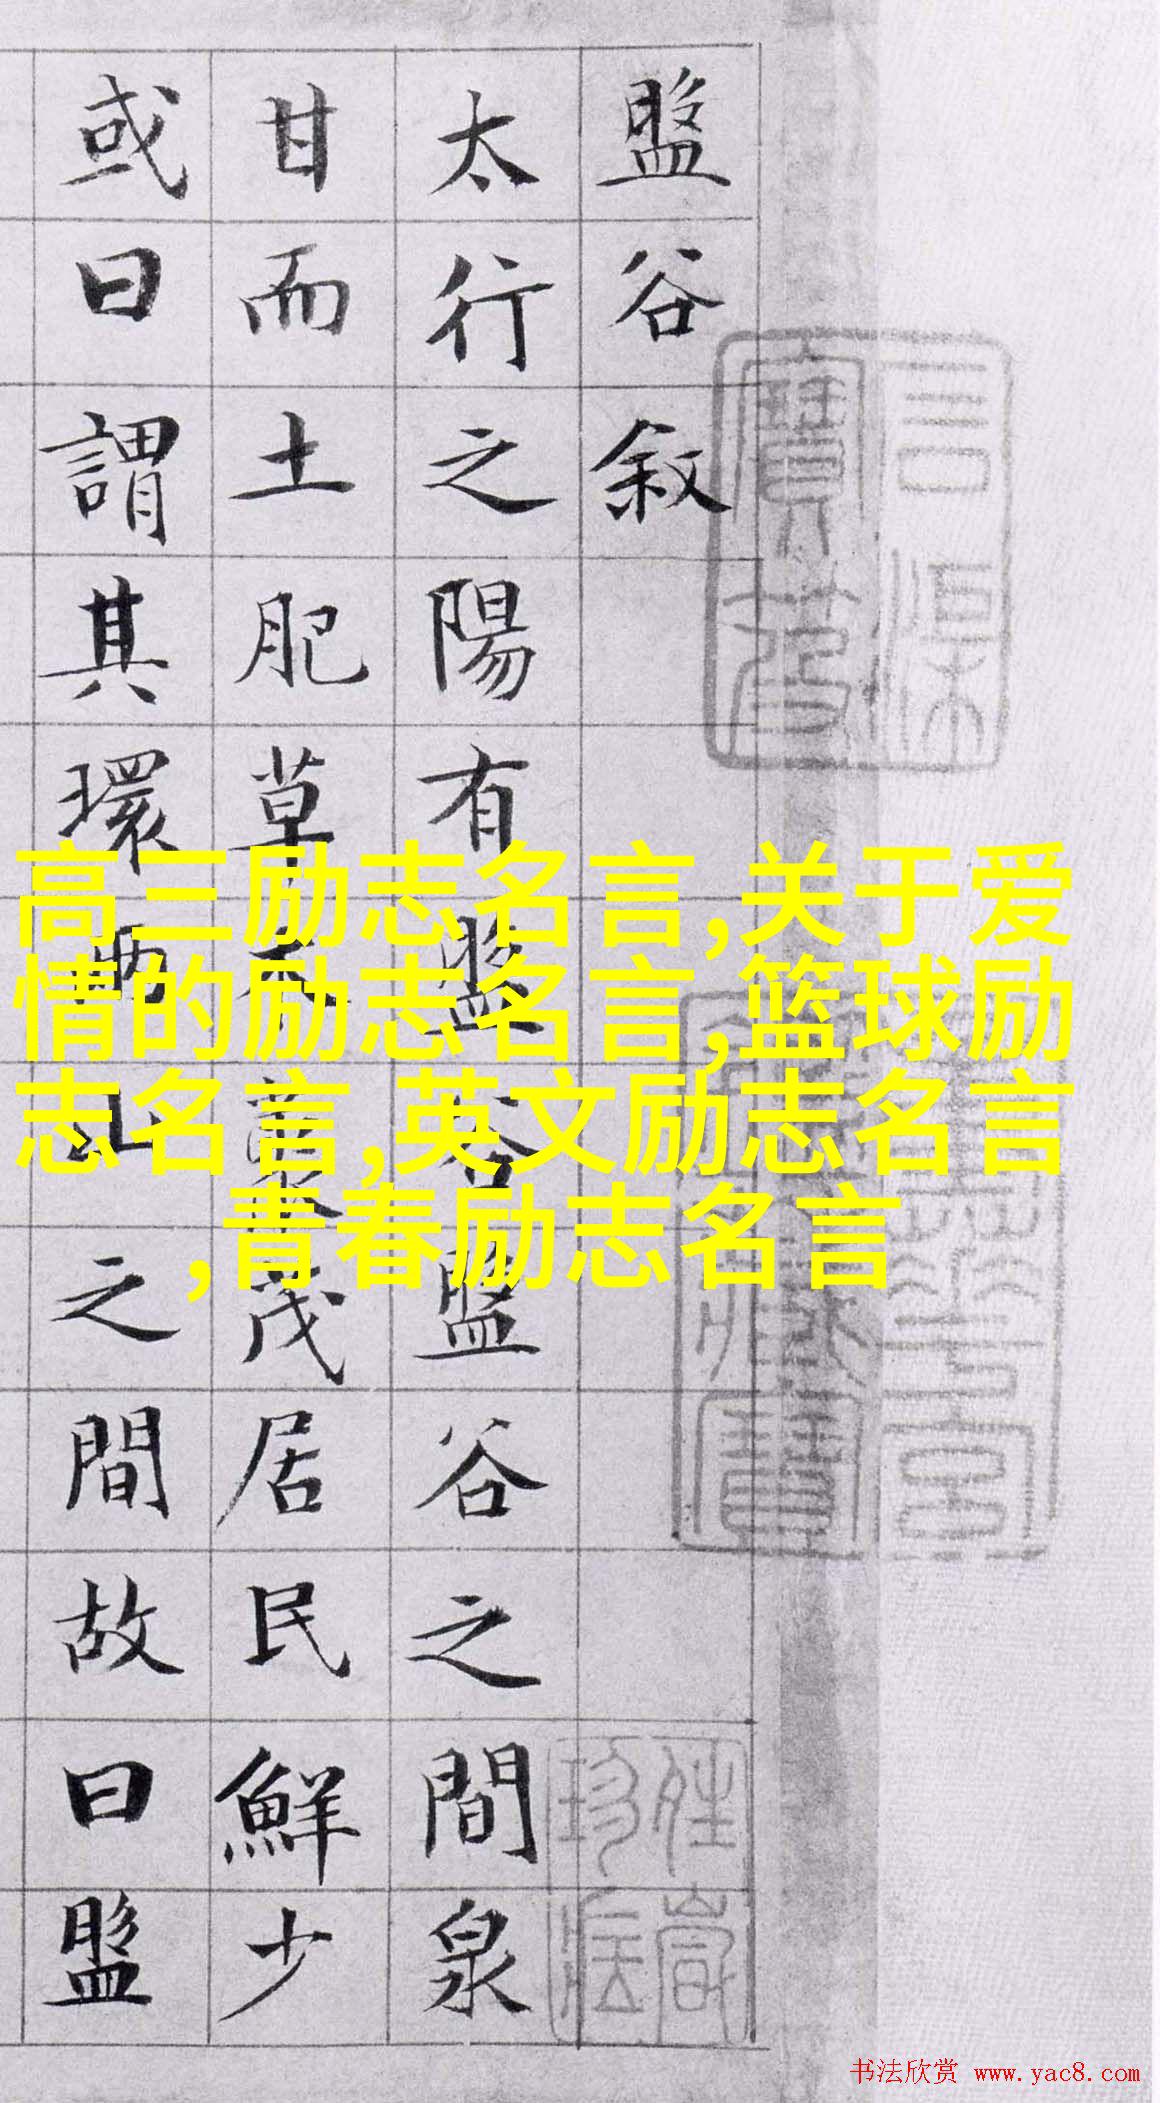 盤谷敘
太行之陽有盤谷盤谷之間泉
甘而土肥草木叢茂居民鮮少
或曰謂其環兩山之間故曰盤
高三励志名言,关于爱
情的励志名言,篮球励
志名言,英文励志名言
,青春励志名言
书法欣赏 www.yac8.com